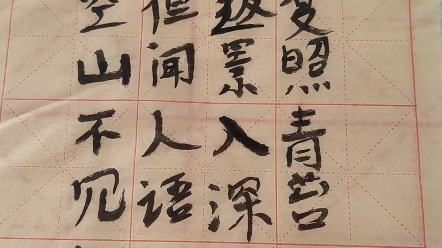 空山不见
但闻人语
返景入深
复照青苔